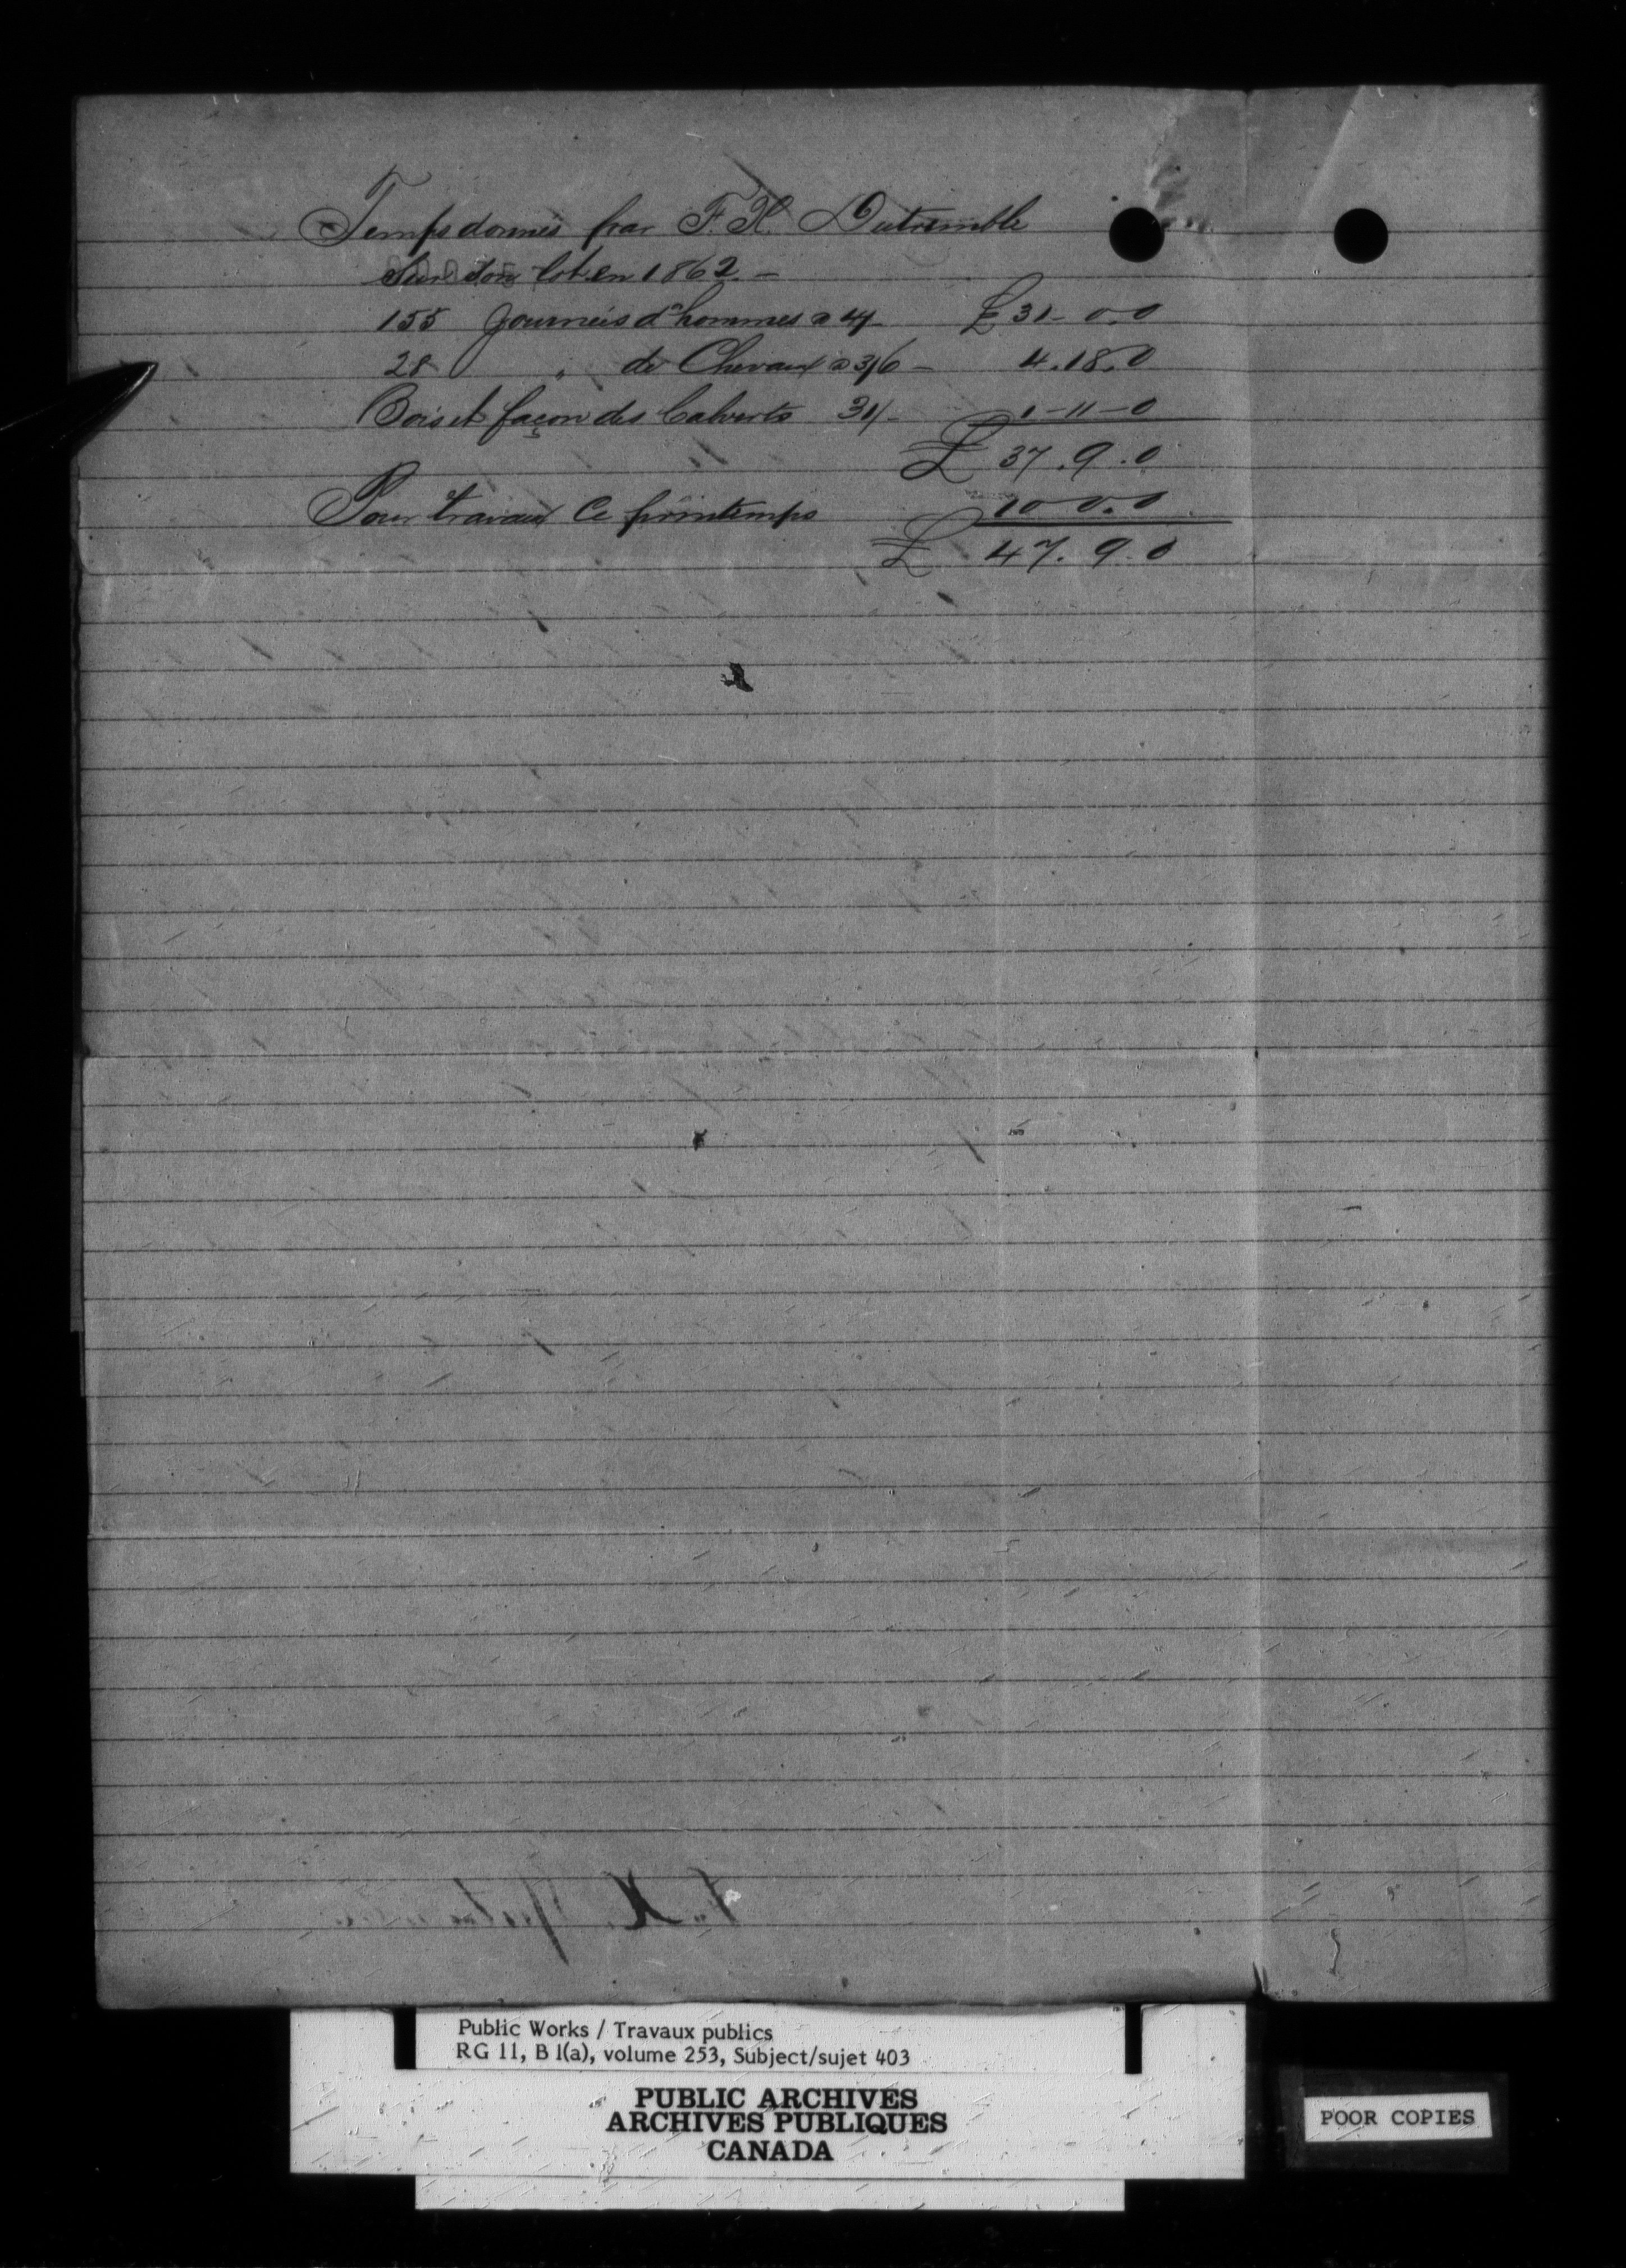 Temps donnés par F. X. Dutremble
Sur son lot en 1862. –
155 Journeés d'hommes a 4/- £ 31 – 0.0
28 " de Chevaux a 3/6 – 4.18.0
Bois et façon des Calverts 31/- 1–11–0
£ 37.9.0
Pour travaux ce printemps 10 0.0
£ 47.9.0
Public Works / Travaux publics
RG 11, B 1(a), volume 253, Subject/sujet 403
PUBLIC ARCHIVES
ARCHIVES PUBLIQUES
CANADA
POOR COPIES